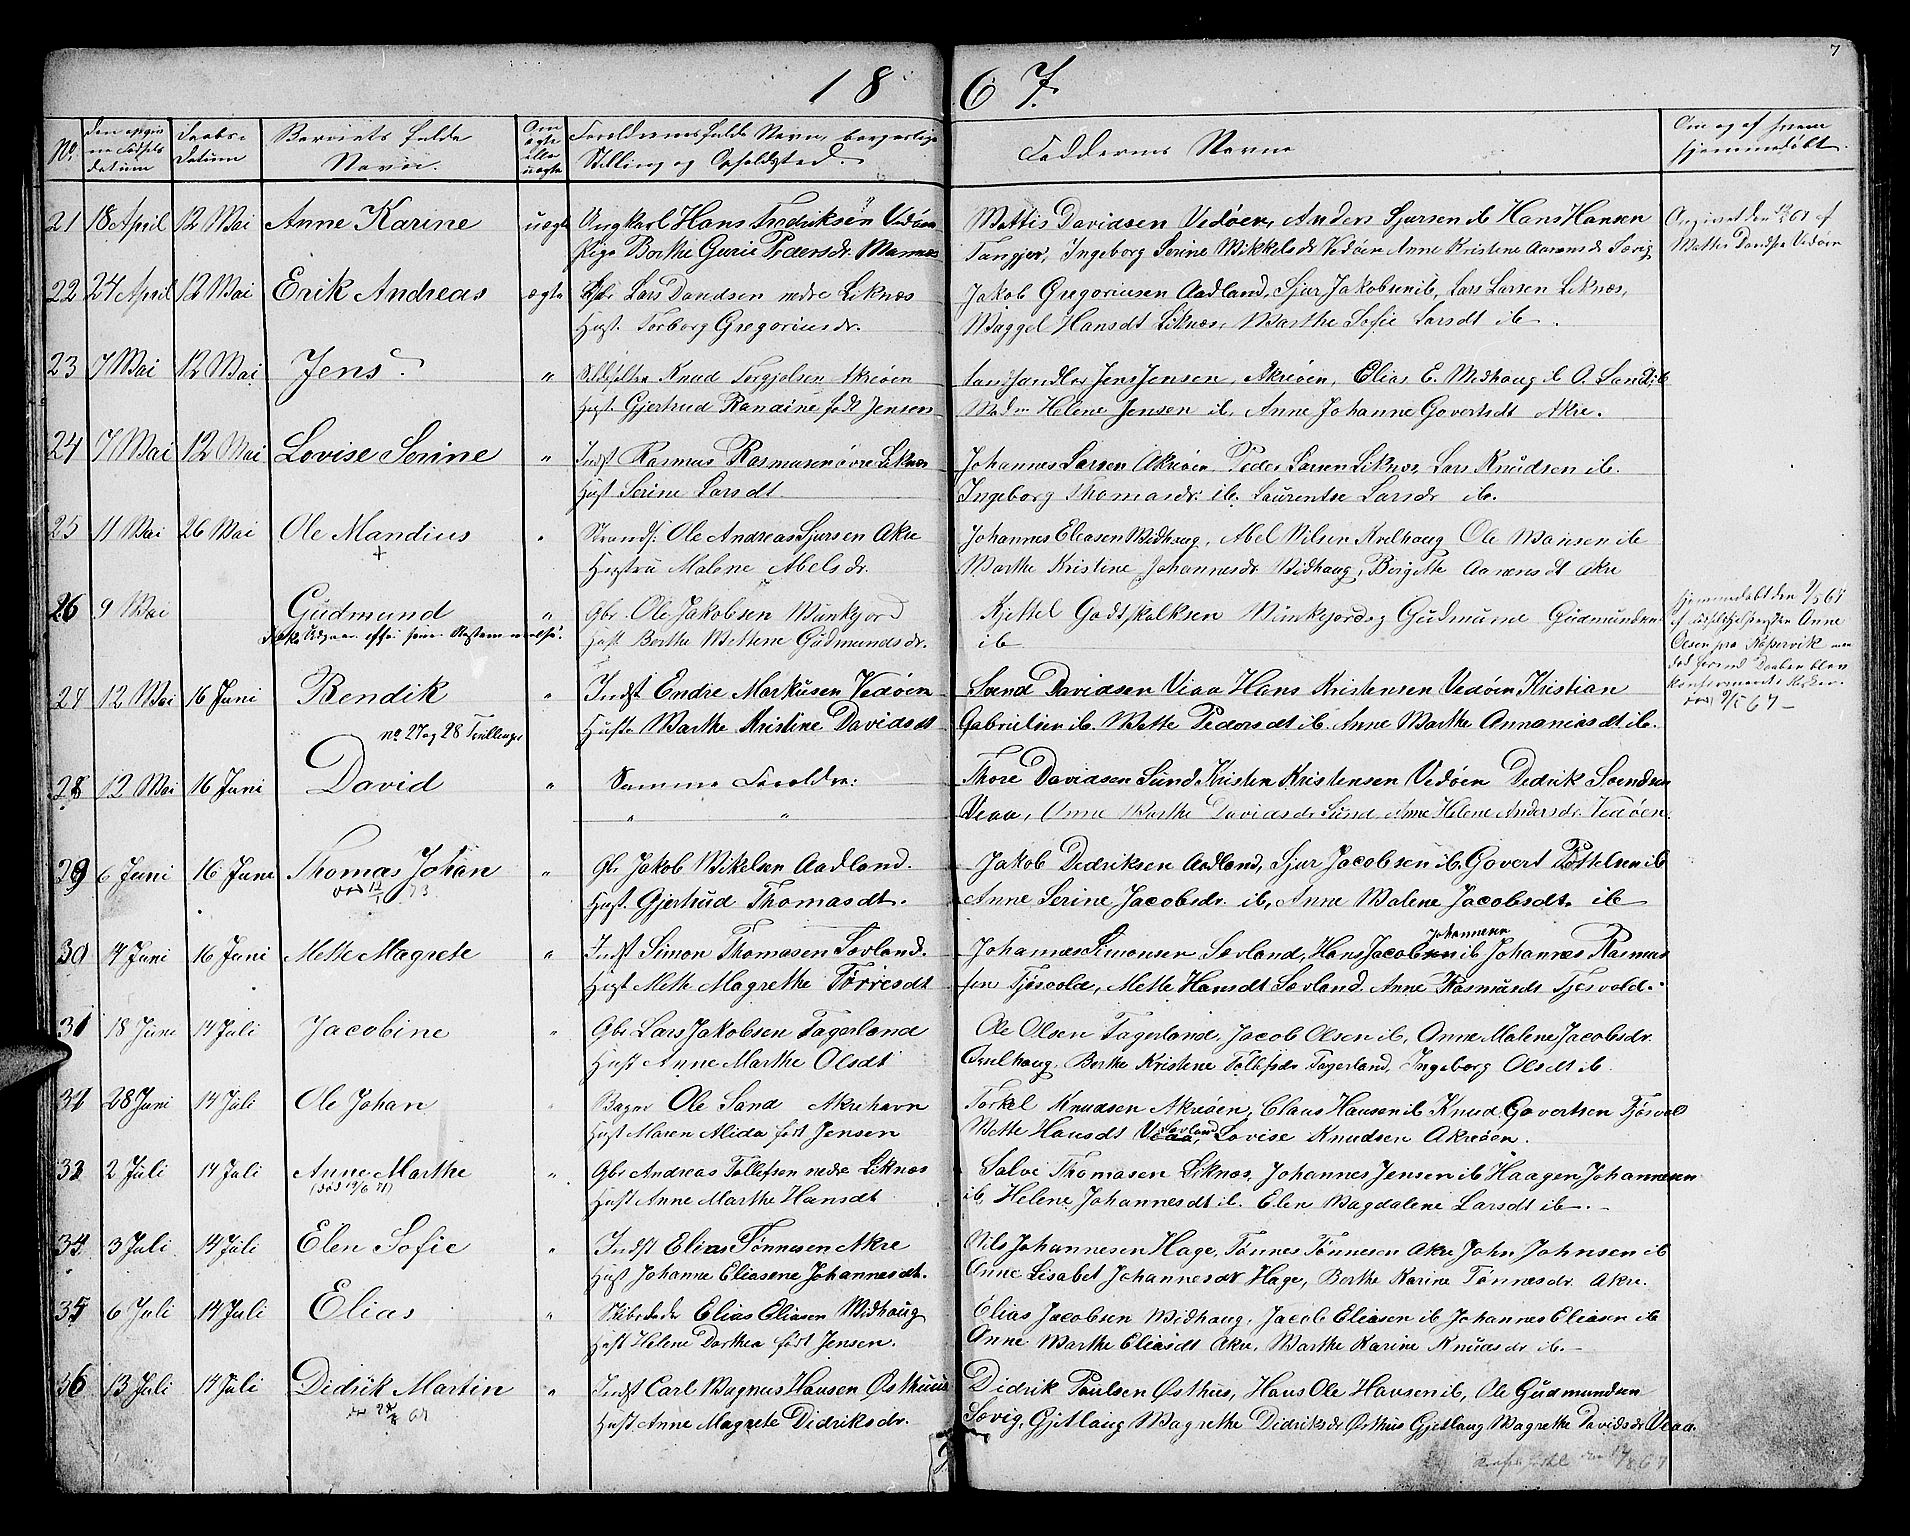 7
18 67.
No. datum Daabs- datum Barnets fulde Navn. Om ægte eller uægte Forældrenes fulde Navn, borgerlige Stilling og Opholdsted. Faddernes Navne Om og af hvem hjemmedøbt.
21 18 April 12 Mai Anne Karine uægte Ungkarl Hans Fredriksen Vedøen Mattis Davidsen Vedøen, Anders Sjursen ib Hans Hansen
Pige Berthe Gurie Pedersdr. Mannes Tangjer, Ingeborg Serine Mikkelsdr Vedøen Anne Kristine Aarensdr Sævig
22 24 April 12 Mai Erik Andreas ægte Gbr Lars Davidsen nedre Liknes Jakob Gregoriusen Aadland, Sjur Jakobsen ib, Lars Larsen Liknes,
Hust. Torborg Gregoriusdr. Maggel Hansdt Liknes, Marthe Sofie Larsdt ib.
23 7 Mai 12 Mai Jens. " Knud Torgjelsen Akreøen Landhandler Jens Jensen, Akreøen, Elias E. Midhaug ib O. Sand ib
Hust. Gjertrud Randine født Jensen Mad m Helene Jensen ib, Anne Johanne Govertsdt Akre.
24 7 Mai 12 Mai Lovise Serine " Indst Rasmus Rasmusen øvre Liknes Johannes Larsen Akreøen Peder Larsen Liknes, Lars Knudsen ib.
Hust Serine Larsdt Ingeborg Thomasdr. ib. Laurentse Larsdr ib.
25 11 Mai 26 Mai Ole Mandius " Strands. Ole Andreas Sjursen Akre Johannes Eliasen Midhaug, Abel Nilsen Kvelhaug Ole Monsen ib
+ Hustru Malene Abelsdr. Marthe Kristine Johannesdr Midhaug, Birgitte Aarensdt Akre
26 9 Mai Gudmund " Gbr. Ole Jakobsen Munkjord Kjettel Godtskalksen Munkejord og Gudmund Gudmundsen
Hust Berthe Mettene Gudmundsdr. ib
hjemmedøbt den 9/5 67 af Anne Olsen fra Kopervik men død forend Daaben blev konfirmeret i Kirken. død 9/5 67 –
27 12 Mai 16 Juni Bendik " Indst Endre Markusen Vedøen Svend Davidsen Viaa Hans Kristensen Vedøen Kristian
no 27 og 28 Tvillinge Hust Marthe Kristine Davidsdt Gabrielsen ib. Mette Pedersdt ib. Anne Marthe Annaniasdt ib.
28 12 Mai 16 Juni David " Samme Foreldre. Thore Davidsen Sund Kristen Kristensen Vedøen Dedrik Svendsen
" " Veaa, Anne Marthe Davidsdr Sund Anne Helene Andersdr. Vedøen.
29 6 Juni 16 Juni Thomas Johan " Gbr Jakob Mikelsen Aadland. Jakob Dedriksen Aadland, Sjur Jacobsen ib, Govert Tostelsen ib
Hust. Gjertrud Thomasdt. Anne Serine Jacobsdr. ib, Anne Malene Jacobsdt. ib
30 4 Juni 16 Juni Mette Magrete " Indst Simon Thomasen Sævland. Johannes Simonsen Sævland, Hans Jacobsen Johannesen ib Johannes Rasmus
Hust Mette Magrethe Tørresdt sen Tjøsvold, Mette Hansdt Sævland Anne Rasmusdt Tjøsvold.
31 18 June 14 Juli Jacobine " Gbr. Lars Jakobsen Fagerland Ole Olsen Fagerland, Jacob Olsen ib, Anne Malene Jacobsdr.
Hust Anne Marthe Olsdt Qvelhaug, Berthe Kristine Tollefsdr Fagerland, Ingeborg Olsdt ib.
32 28 Juni 14 Juli Ole Johan " Bager Ole Sand Akrehavn Torkel Knudsen Akreøen, Claus Hansen ib Knud Govertsen Tjøsvol
Hust Maren Alida født Jensen Mette Hansdt Veaa Sævland, Lovise Knudsen Akreøen.
33 2 Juli 14 Juli Anne Marthe " Gbr Andreas Tollefsen nedre Liknes Salve Thomasen Liknes, Johannes Jensen ib Haagen Johannesen
Hust Anne Marthe Hansdt ib, Helene Johannesdt ib. Elen Magdalene Larsdt ib.
34 3 Juli 14 Juli Elen Sofie " Indst Elias Tønnesen Akre Nils Johannesen Hage, Tønnes Tønnesen Akre John Johnsen ib
Hust Johanne Eliasene Johannesdt. Anne Lisabet Johannesdt Hage, Berthe Karine Tønnesdr. Akre.
35 6 Juli 14 Juli Elias " Skibsreder Elias Eliasen Midhaug Elias Jacobsen Midhaug, Jacob Eliasen ib Johannes Eliasen ib
Hust Helene Dorthea født Jensen. Anne Marthe Eliasdt Akre, Marthe Karine Knudsdr ib.
36 13 Juli 14 Juli Didrik Martin " Indst Carl Magnus Hansen Østhuus Didrik Poulsen Østhus, Hans Ole Hansen ib, Ole Gudmundsen
Hust Anne Magrete Didriksdr. Sævig, Gjetlaug Magrethe Didriksdr Østhus Gjetlaug Magrethe Davidsdr Veaa.